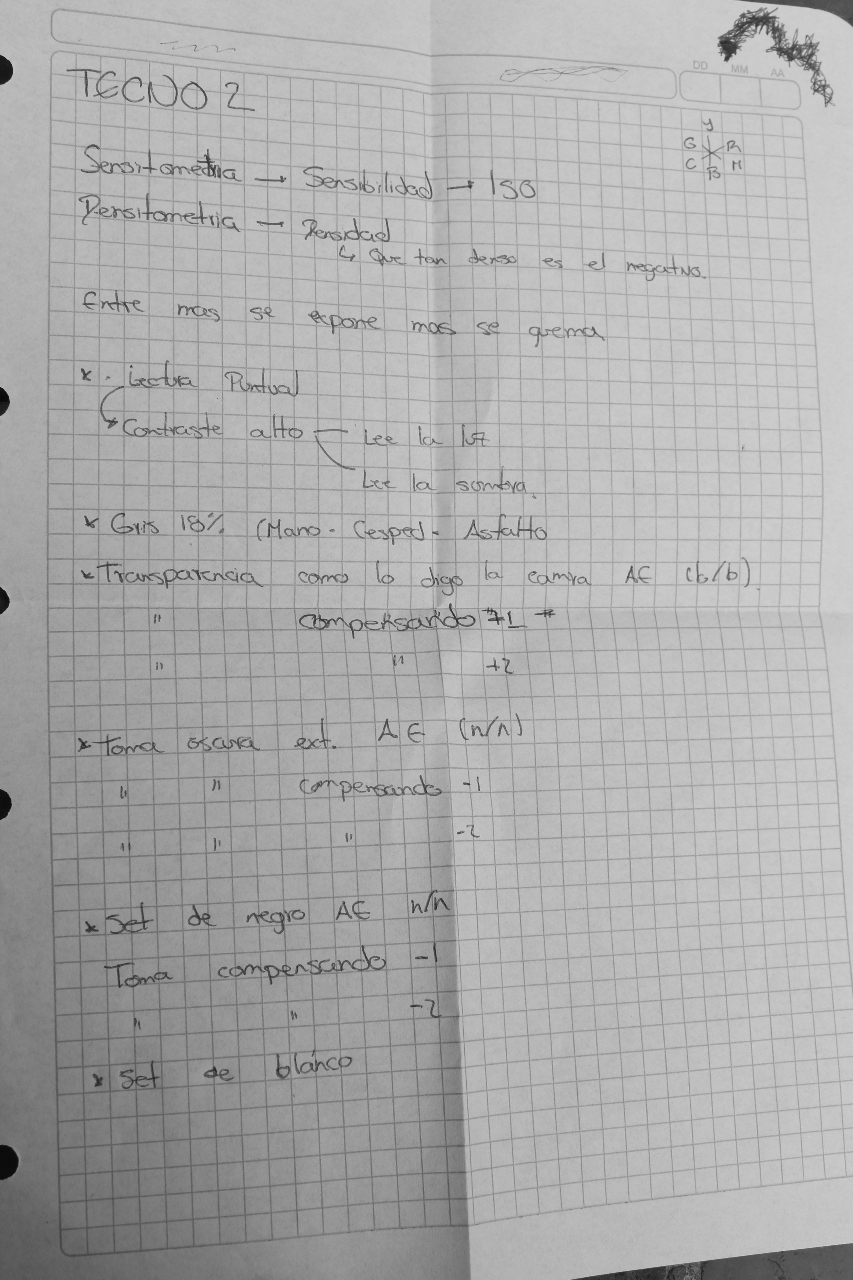 DD MM AA
TECNO 2
Y
G R
C M
B
Sensitometria → Sensibilidad → ISO
Densitometria → Densidad
↳ que tan denso es el negativo.
Entre mas se expone mas se quema
* . Lectura Puntual
Contraste alto Lee la luz
Lee la sombra.
* Gris 18% (Mano - Cesped - Asfalto
* Transparencia como lo digo la camra AE (b/b)
" compensando +1 *
" " +2
* Toma oscura ext. AE (n/n)
" " compensando -1
" " " -2
* Set de negro AE n/n
Toma compensando -1
" " -2
* Set de blanco